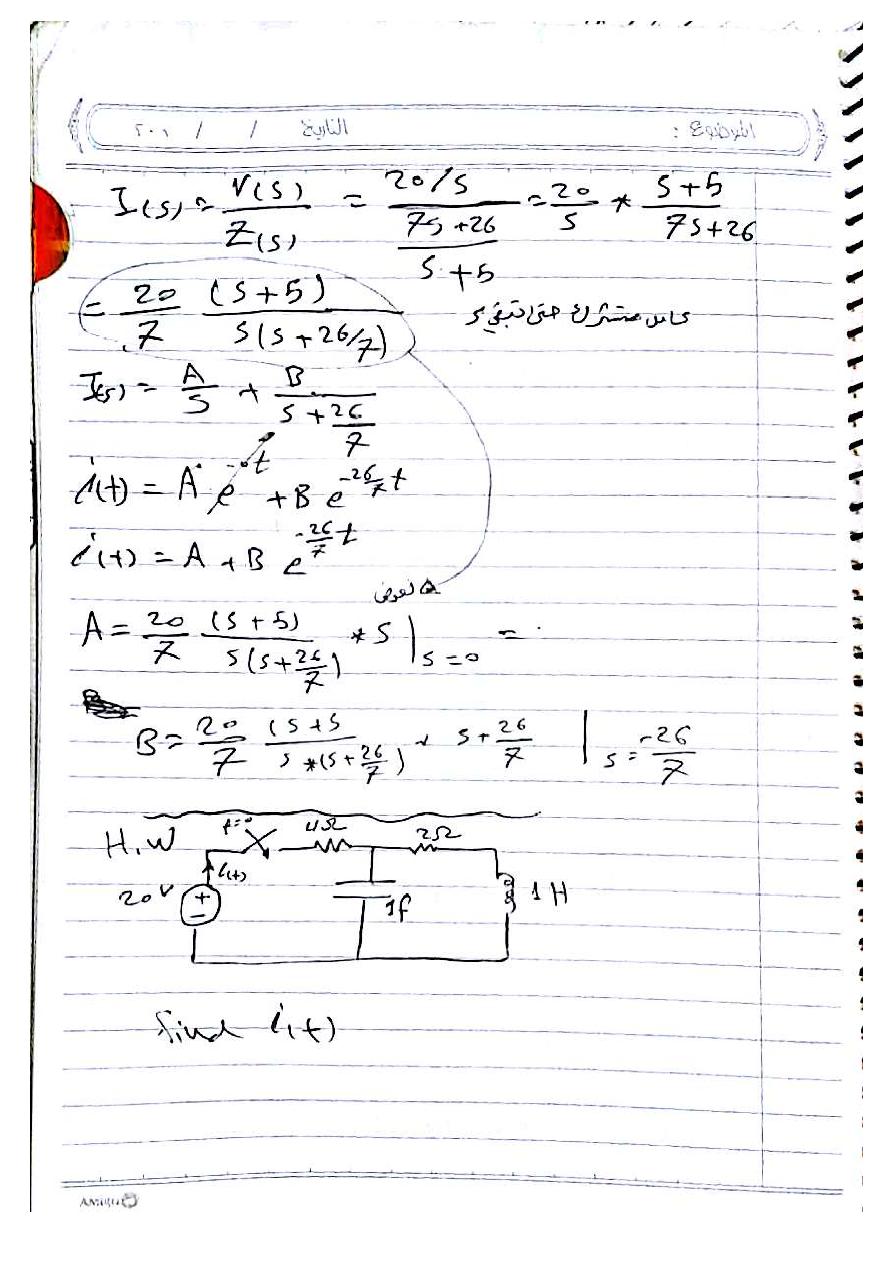 الموضوع : التاريخ / / ٢٠١
I(s) = V(s) / Z(s) = (20/s) / ((7s+26) / (s+5)) = 20/s * (s+5) / (7s+26)
= 20/7 (s+5) / (s(s+26/7)) عامل مشترك حتى تبقى s
I(s) = A/s + B/(s+26/7)
i(t) = A e^-0t + B e^-26/7 t
i(t) = A + B e^-26/7 t
A = 20/7 (s+5) / (s(s+26/7)) * s | s=0 =
B = 20/7 (s+5 / (s*(s+26/7)) * s+26/7 | s = -26/7
H.W t=0 4Ω 2Ω
i(t)
20V + - 1f 1H
find i(t)